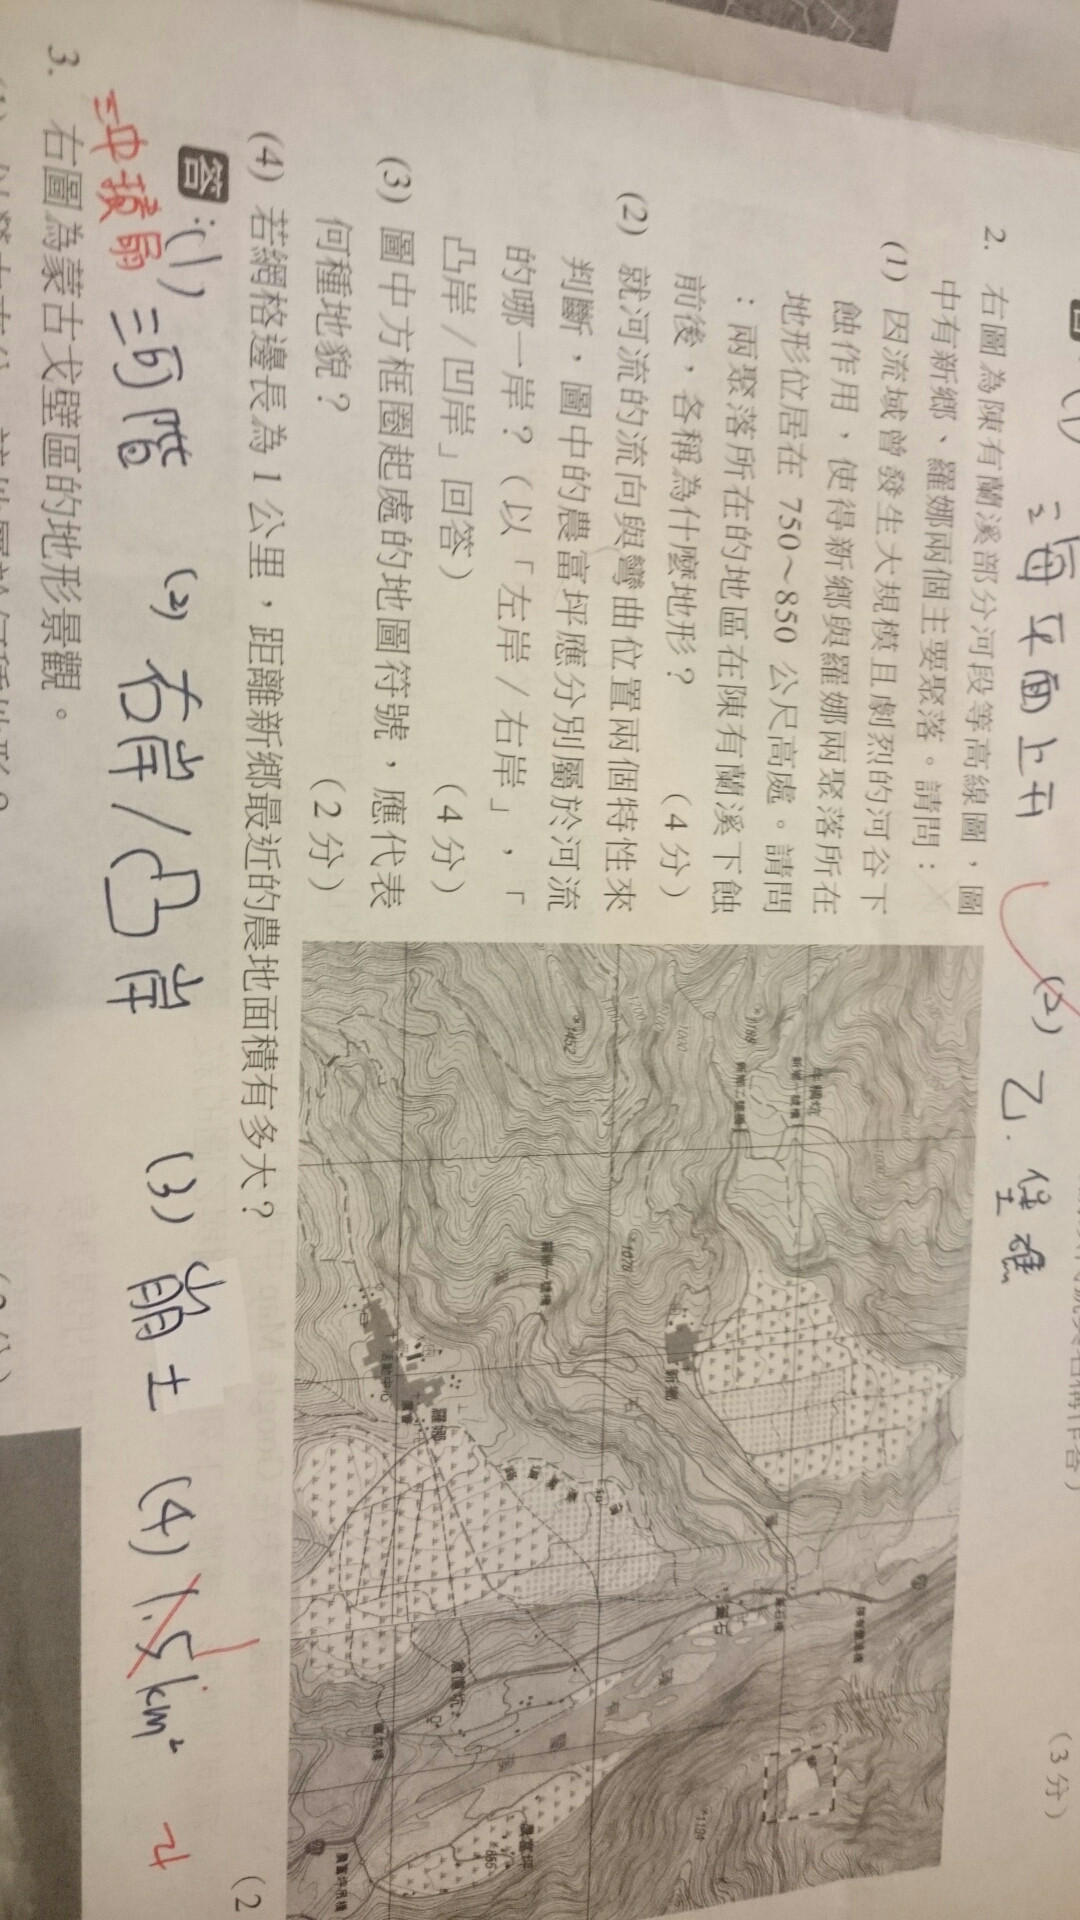 (1) 海平面上升 (2) 乙. 堡礁
(3分)
2. 右圖為陳有蘭溪部分河段等高線圖，圖
中有新鄉、羅娜兩個主要聚落。請問：
(1) 因流域曾發生大規模且劇烈的河谷下
蝕作用，使得新鄉與羅娜兩聚落所在
地形位居在 750～850 公尺高處。請問
：兩聚落所在的地區在陳有蘭溪下蝕
前後，各稱為什麼地形？ (4 分)
(2) 就河流的流向與彎曲位置兩個特性來
判斷，圖中的農富坪應分別屬於河流
的哪一岸？（以「左岸／右岸」，「
凸岸／凹岸」回答） (4 分)
(3) 圖中方框圈起處的地圖符號，應代表
何種地貌？ (2 分)
(4) 若網格邊長為 1 公里，距離新鄉最近的農地面積有多大？ (2
答：(1) 河階 (2) 右岸/凸岸 (3) 崩土 (4) 1.5km²
沖積扇
3. 右圖為蒙古戈壁區的地形景觀。
1188
新鄉一號橋
新鄉二號橋
1452
1078
新鄉
羅娜
活動中心
農富坪
866
1184
農富坪吊橋